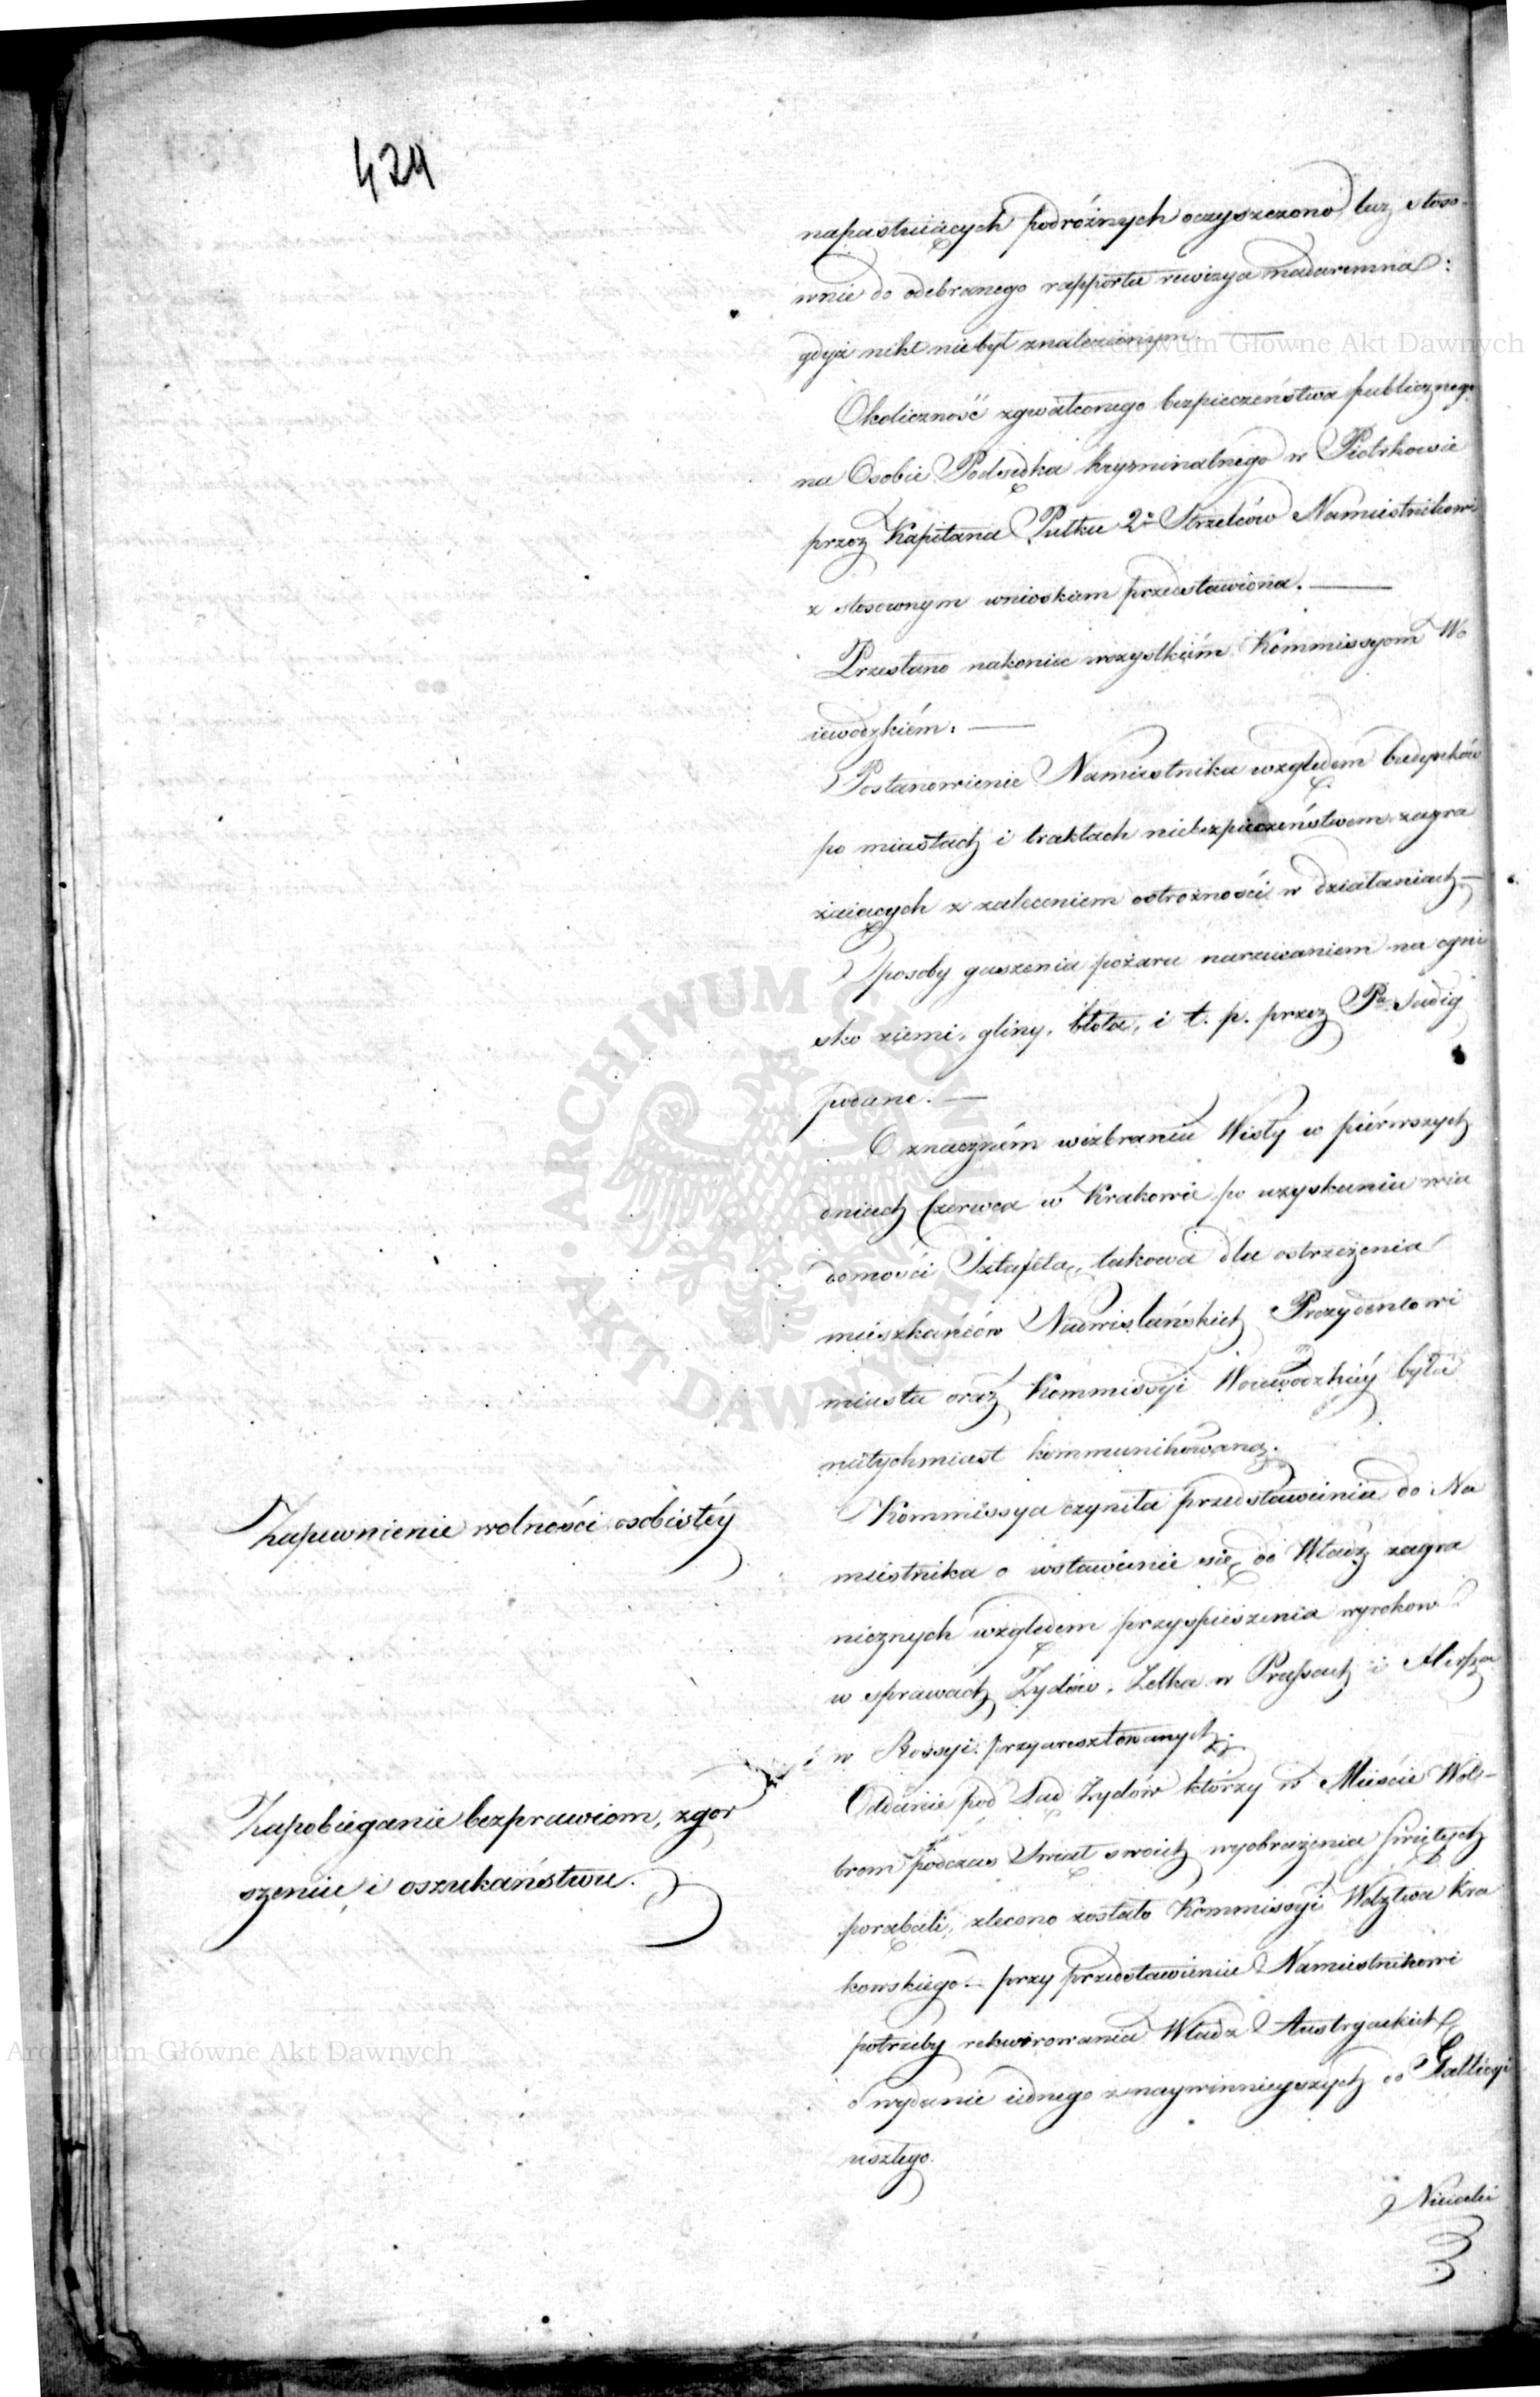 424
napastuiących podróżnych oczyszczono, lecz stoso-
wnie do odebranego rapportu rewizya nadaremna:
gdyż nikt niebył znalezionym.
Okoliczność zgwałconego bezpieczeństwa publicznego
na Osobie Podsędka kryminalnego w Piotrkowie
przez Kapitana Pułku 2º Strzelców Namiestnikowi
z stosownym wnioskiem przedstawiona.
Przesłano nakoniec wszystkiém Kommissyom Wo
iewodzkiém.
Postanowienie Namiestnika względem budynków
po miastach i traktach niebezpieczeństwem zagra
żaiących z zaleceniem ostrożności w działaniach
Sposoby gaszenia pożaru narzucaniem na ogni
sko ziemi, gliny, błota, i t. p. przez Pa Sadig
podane.
O znaczném wezbraniu Wisły w piérwszych
dniach Czerwca w Krakowie po uzyskaniu wia
domości Sztafetą, takowa dla ostrzeżenia
mieszkańców Nadwiślańskich Prezydentowi
miasta oraz Kommissyi Woiewodzkiéy była
natychmiast kommunikowaną.
Zapewnienie wolności osobistéy
Kommissya czyniła przedstawienia do Na
miestnika o wstawienie się do Władz zagra
nicznych względem przyspieszenia wyrokow
w sprawach Zydów, Zelka w Prusach i Mersza
w Rossyi przyaresztowanych.
Zapobieganie bezprawiom, zgor
szeniu i oszukaństwu.
Oddanie pod Sąd Zydów którzy w Mieście Wol-
brom podczas Swiąt swoich wyobrażenia świętych
porąbali, zlecono zostało Kommissyi Wdztwa Kra
kowskiego przy przedstawieniu Namiestnikowi
potrzeby rekwirowania Władz Austryackich
o wydanie iednego z naywinnieyszych do Gallicyi
uszłego.
Archiwum Główne Akt Dawnych
Archiwum Główne Akt Dawnych
ARCHIWUM GŁÓWNE · AKT DAWNYCH ·